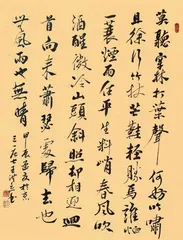 莫聽穿林打葉聲何妨吟嘯
且徐行竹杖芒鞋輕勝馬誰怕
一蓑煙雨任平生料峭春風吹
酒醒微冷山頭斜照卻相迎迴
首向來蕭瑟處歸去也
無風雨也無晴甲辰